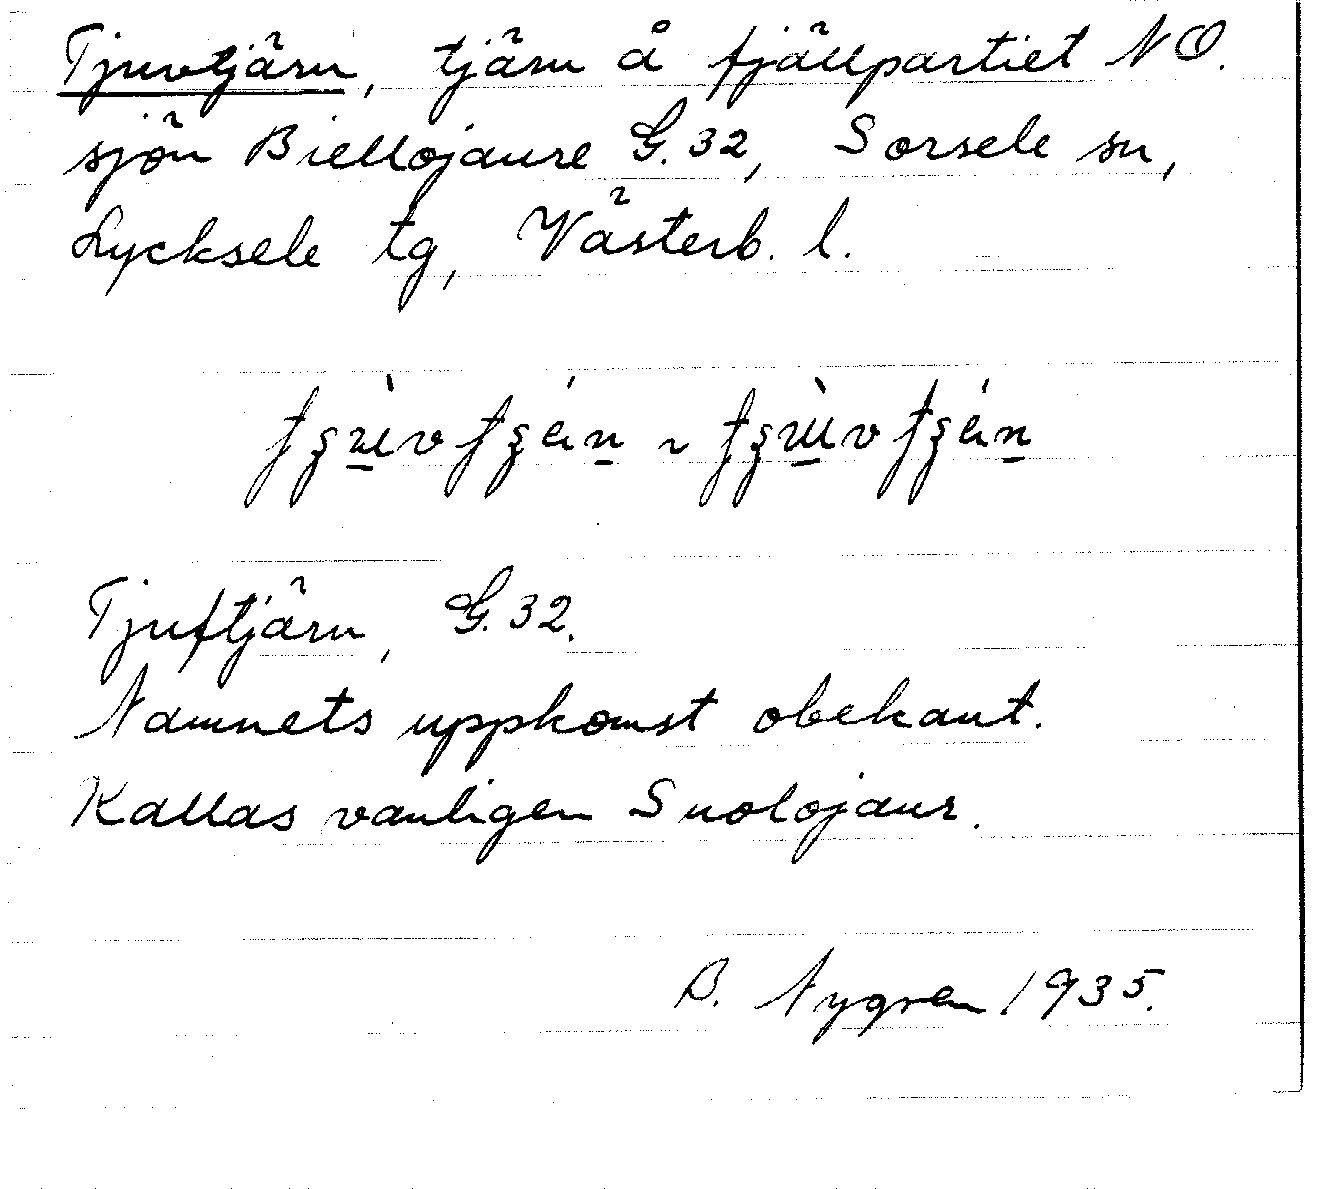 Tjuvtjärn, tjärn å fjällpartiet NO.
sjön Biellojaure G.32, Sorsele sn,
Lycksele tg, Västerb. l.
Tjuftjärn, G.32.
Namnets uppkomst obekant.
Kallas vanligen Suolojaur.
B. Nygren 1935.